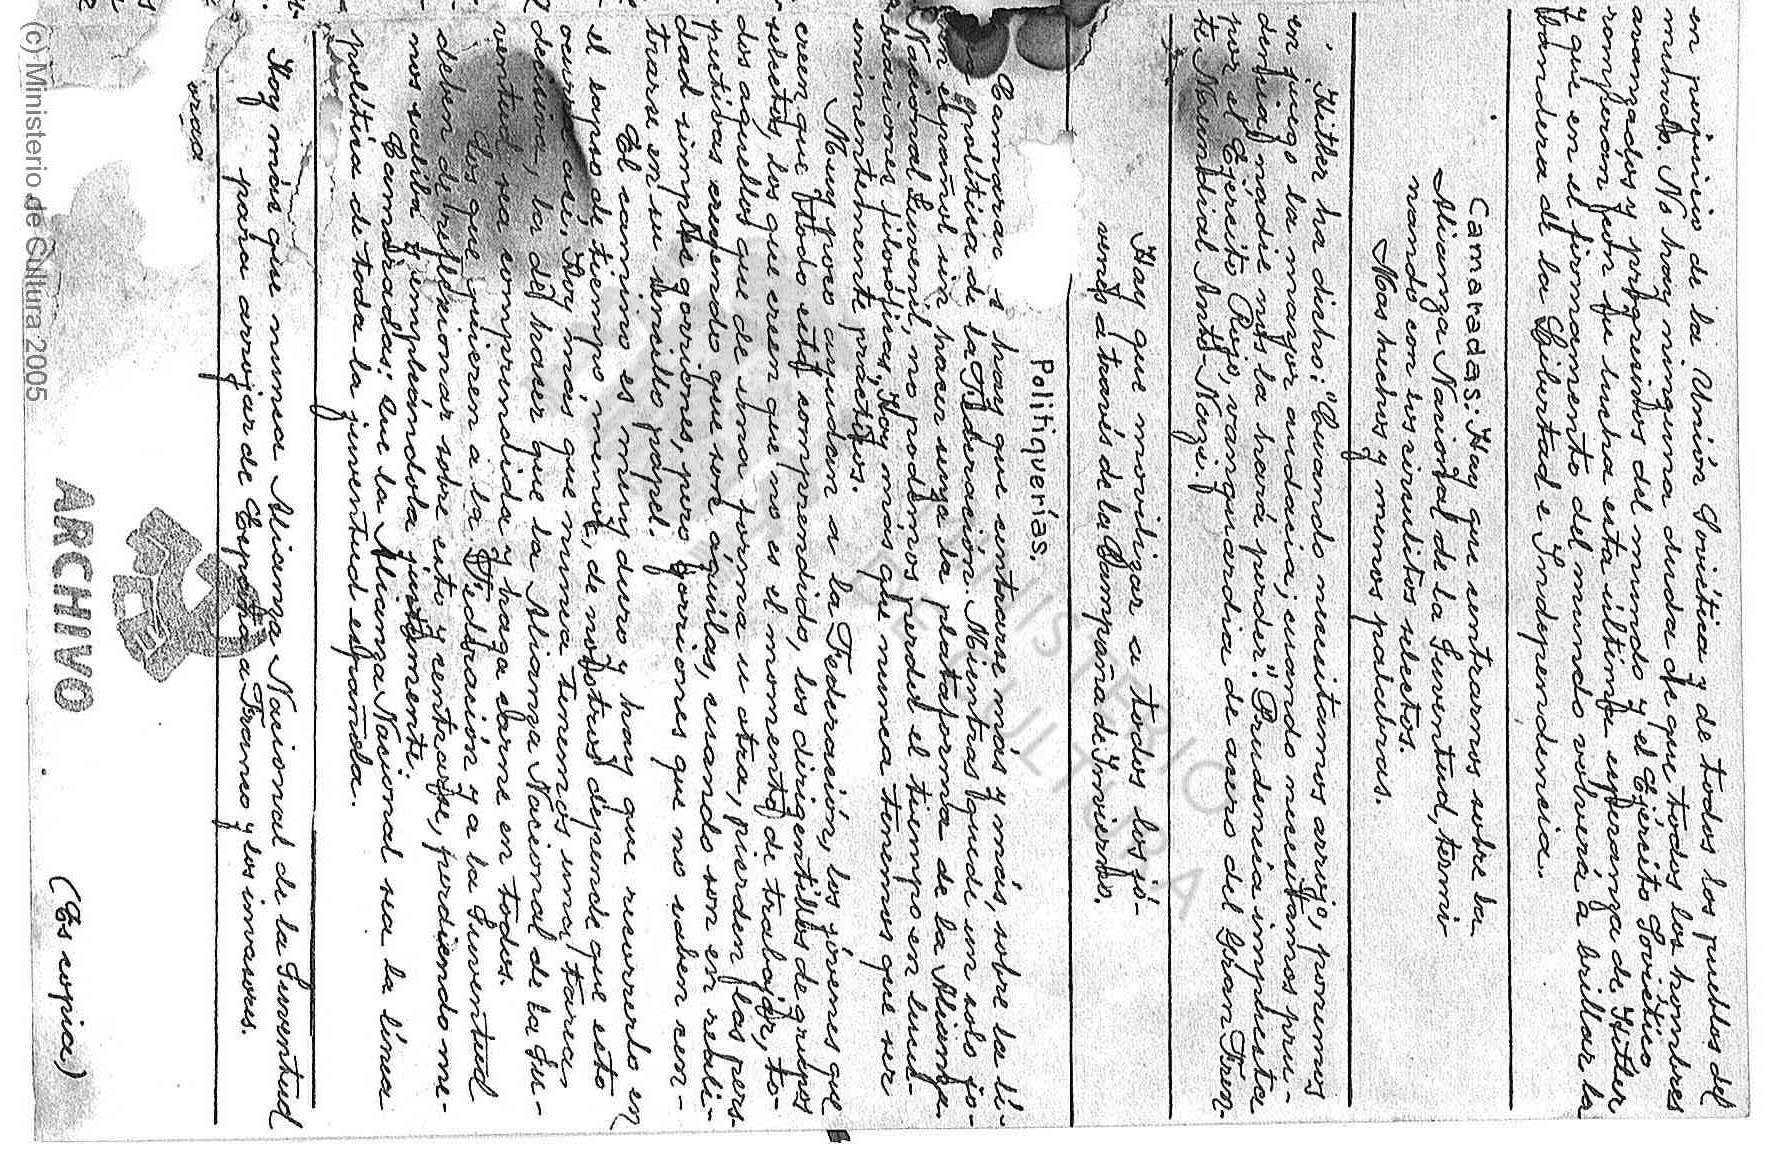 en perjuicio de la Unión Soviética y de todos los pueblos del
mundo. No hay ninguna duda de que todos los hombres
avanzados y progresivos del mundo y el Ejército Soviético
romperán con su lucha esta última esperanza de Hitler
y que en el firmamento del mundo volverá a brillar la
bandera de la Libertad e Independencia.
Camaradas: Hay que centrarnos sobre la
Alianza Nacional de la Juventud, termi-
nando con los circulitos selectos.
Mas hechos y menos palabras.
Hitler ha dicho: "Cuando necesitamos arrojo, ponemos
en juego la mayor audacia; cuando necesitamos pru-
dencia, nadie nos la hará perder". Prudencia impuesta
por el Ejército Rojo, vanguardia de acero del Gran Fren-
te Mundial Anti-Nazi.
Hay que movilizar a todos los jó-
venes a través de la Campaña de Invierno.
Politiquerías.
Camaradas hay que centrarse más y más, sobre la lí-
política de la Federación. Mientras quede un solo jo-
ven español sin hacer suya la plataforma de la Alianza
Nacional Juvenil, no podemos perder el tiempo en lucu-
braciones filosóficas, Hoy más que nunca tenemos que ser
eminentemente prácticos.
Muy poco ayudan a la Federación, los jóvenes que
creen que todo está comprendido, los dirigentillos de grupos
selectos, los que creen que no es el momento de trabajar, to-
dos aquellos que de una forma u otra, pierden las pers-
pectivas creyendo que son águilas, cuando son en reali-
dad simples gorriones, pero gorriones que no saben cen-
trarse en su sencillo papel.
El camino es muy duro y hay que recorrerlo en
el lapso de tiempo menor, de nosotros depende que esto
ocurra así. Hoy más que nunca tenemos una tarea
decisiva, la de hacer que la Alianza Nacional de la Ju-
ventud sea comprendida y haga carne en todos.
Los que quieren a la Federación y a la Juventud
deben de reflexionar sobre esto y centrarse, perdiendo me-
nos saliba y empleándola justamente.
Camaradas: Que la Alianza Nacional sea la línea
política de toda la juventud española.
Hoy más que nunca Alianza Nacional de la Juventud
para arrojar de España a Franco y los invasores.
(Es copia)
ARCHIVO
MINISTERIO
DE CULTURA
(c) Ministerio de Cultura 2005